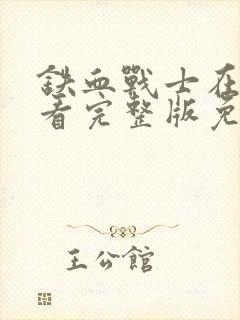 铁血戰士在
看完整版免
王公館